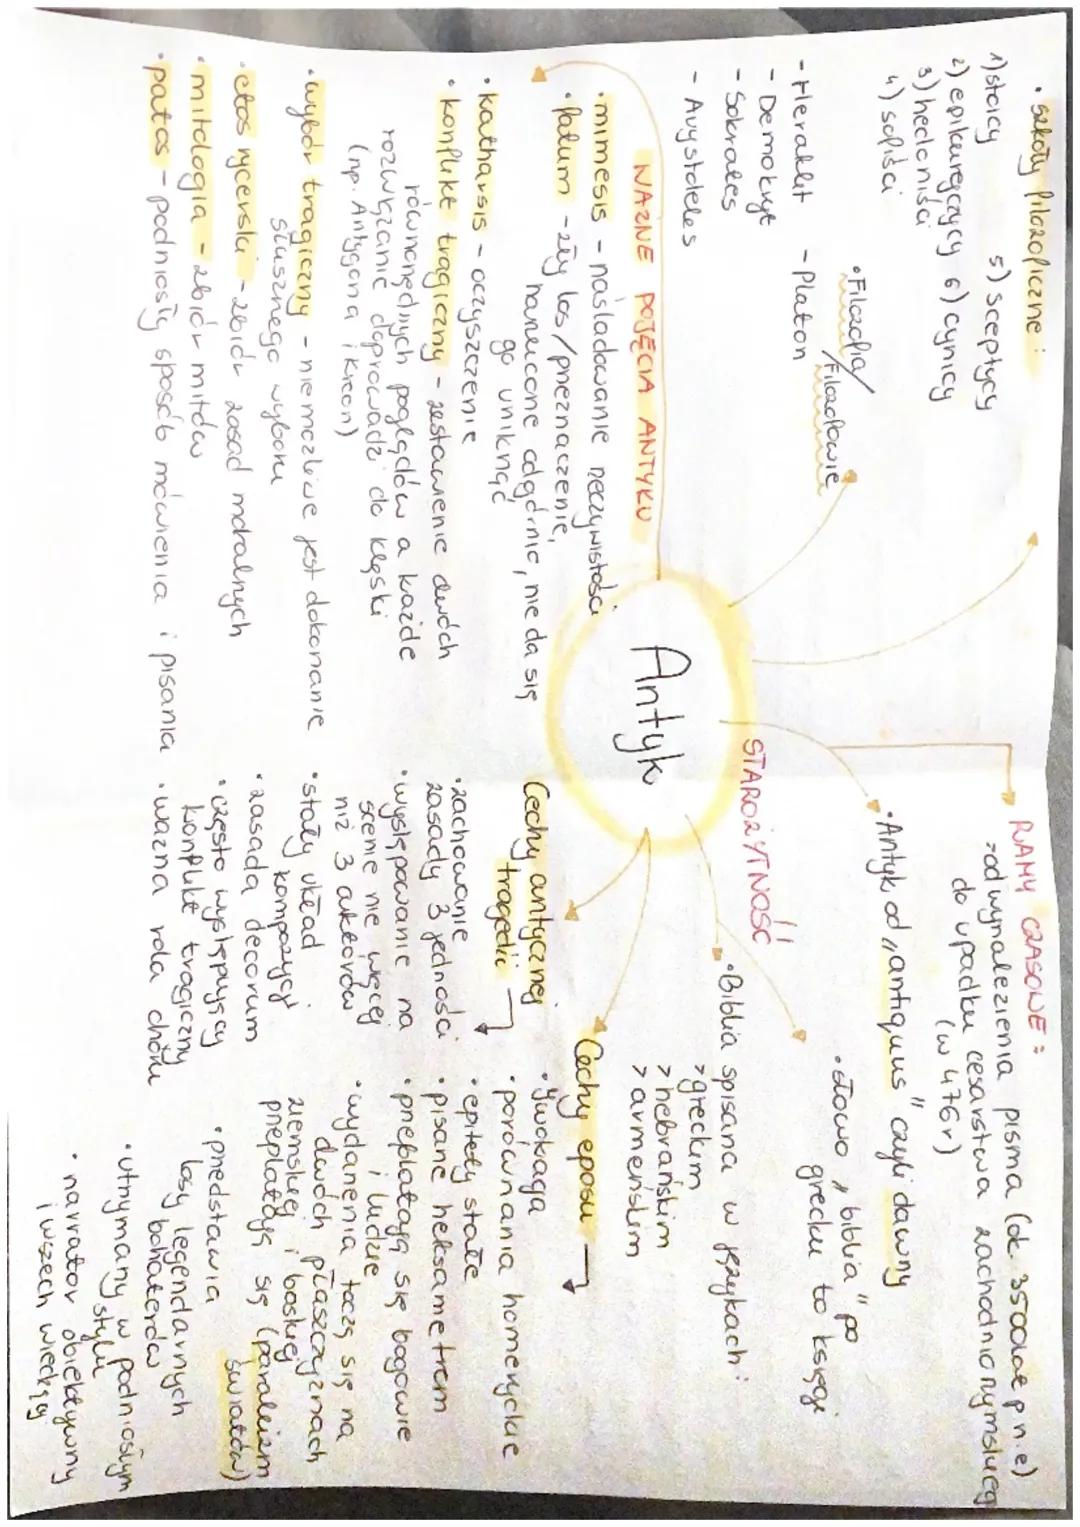 • szkoły filozoficzne:
1) stoicy 5) sceptycy
2) epikurejczycy 6) cynicy
3) hedoniści
4) sofiści
• Filozofia/
Filozofowie
- Heraklit - Platon
- Demokryt
- Sokrates
- Arystoteles
WAŻNE POJĘCIA ANTYKU
• mimesis - naśladowanie rzeczywistości
• fatum - zły los/przeznaczenie,
narzucone odgórnie, nie da się
go uniknąć
• katharsis - oczyszczenie
• konflikt tragiczny - zestawienie dwóch
równorzędnych poglądów a każde
rozwiązanie doprowadzi do klęski
(np. Antygona i Kreon)
• wybór tragiczny - niemożliwe jest dokonanie
słusznego wyboru
• etos rycerski - zbiór zasad moralnych
• mitologia - zbiór mitów
• patos - podniosły sposób mówienia i pisania
Antyk
STAROŻYTNOŚĆ
RAMY CZASOWE:
> od wynalezienia pisma (ok. 3500 lat p.n.e)
do upadku cesarstwa zachodnio rzymskieg
(w 476r)
• Antyk od „antiquus" czyli dawny
• słowo „biblia" po
grecku to księgi
• Biblia spisana w językach:
> greckim
> hebrańskim
> armeńskim
Cechy antycznej
tragedii
• zachowanie
zasady 3 jedności
• występowanie na
scenie nie więcej
niż 3 aktorów
• stały układ
kompozycji
• zasada decorum
• często występujący
konflikt tragiczny
• ważna rola chóru
Cechy eposu
• Inwokacja
• porównania homeryckie
• epitety stałe
• pisane heksametrem
• przeplatają się bogowie
i ludzie
• wydarzenia toczą się na
dwóch płaszczyznach
ziemskiej i boskiej
przeplatają się (paralelizm
światów)
• przedstawia
losy legendarnych
bohaterów
• utrzymany w podniosłym
stylu
• narrator obiektywny
i wszech wiedzący